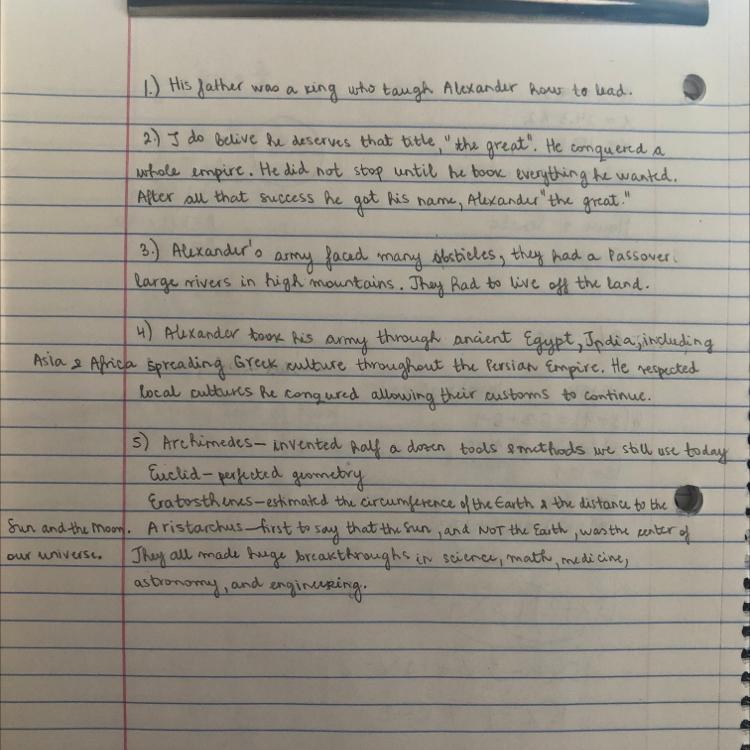 1.) His father was a king who taugh Alexander how to lead.
2) I do belive he deserves that title, "the great". He conquered a
whole empire. He did not stop until he took everything he wanted.
After all that success he got his name, Alexander "the great."
3.) Alexander's army faced many obsticles, they had a Passover
large rivers in high mountains. They had to live off the land.
4) Alexander took his army through ancient Egypt, India, including
Asia & Africa spreading Greek culture throughout the Persian Empire. He respected
local cultures he conqured allowing their customs to continue.
5) Archimedes - invented half a dozen tools & methods we still use today
Euclid - perfected geometry
Eratosthenes - estimated the circumference of the Earth & the distance to the
Sun and the Moon. Aristarchus - first to say that the Sun, and NOT the Earth, was the center of
our universe. They all made huge breakthroughs in science, math, medicine,
astronomy, and engineering.